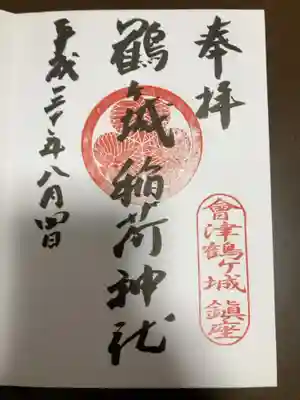 奉拝
會津鶴ヶ城鎮座
鶴ヶ城稲荷神社
平成三十年八月四日